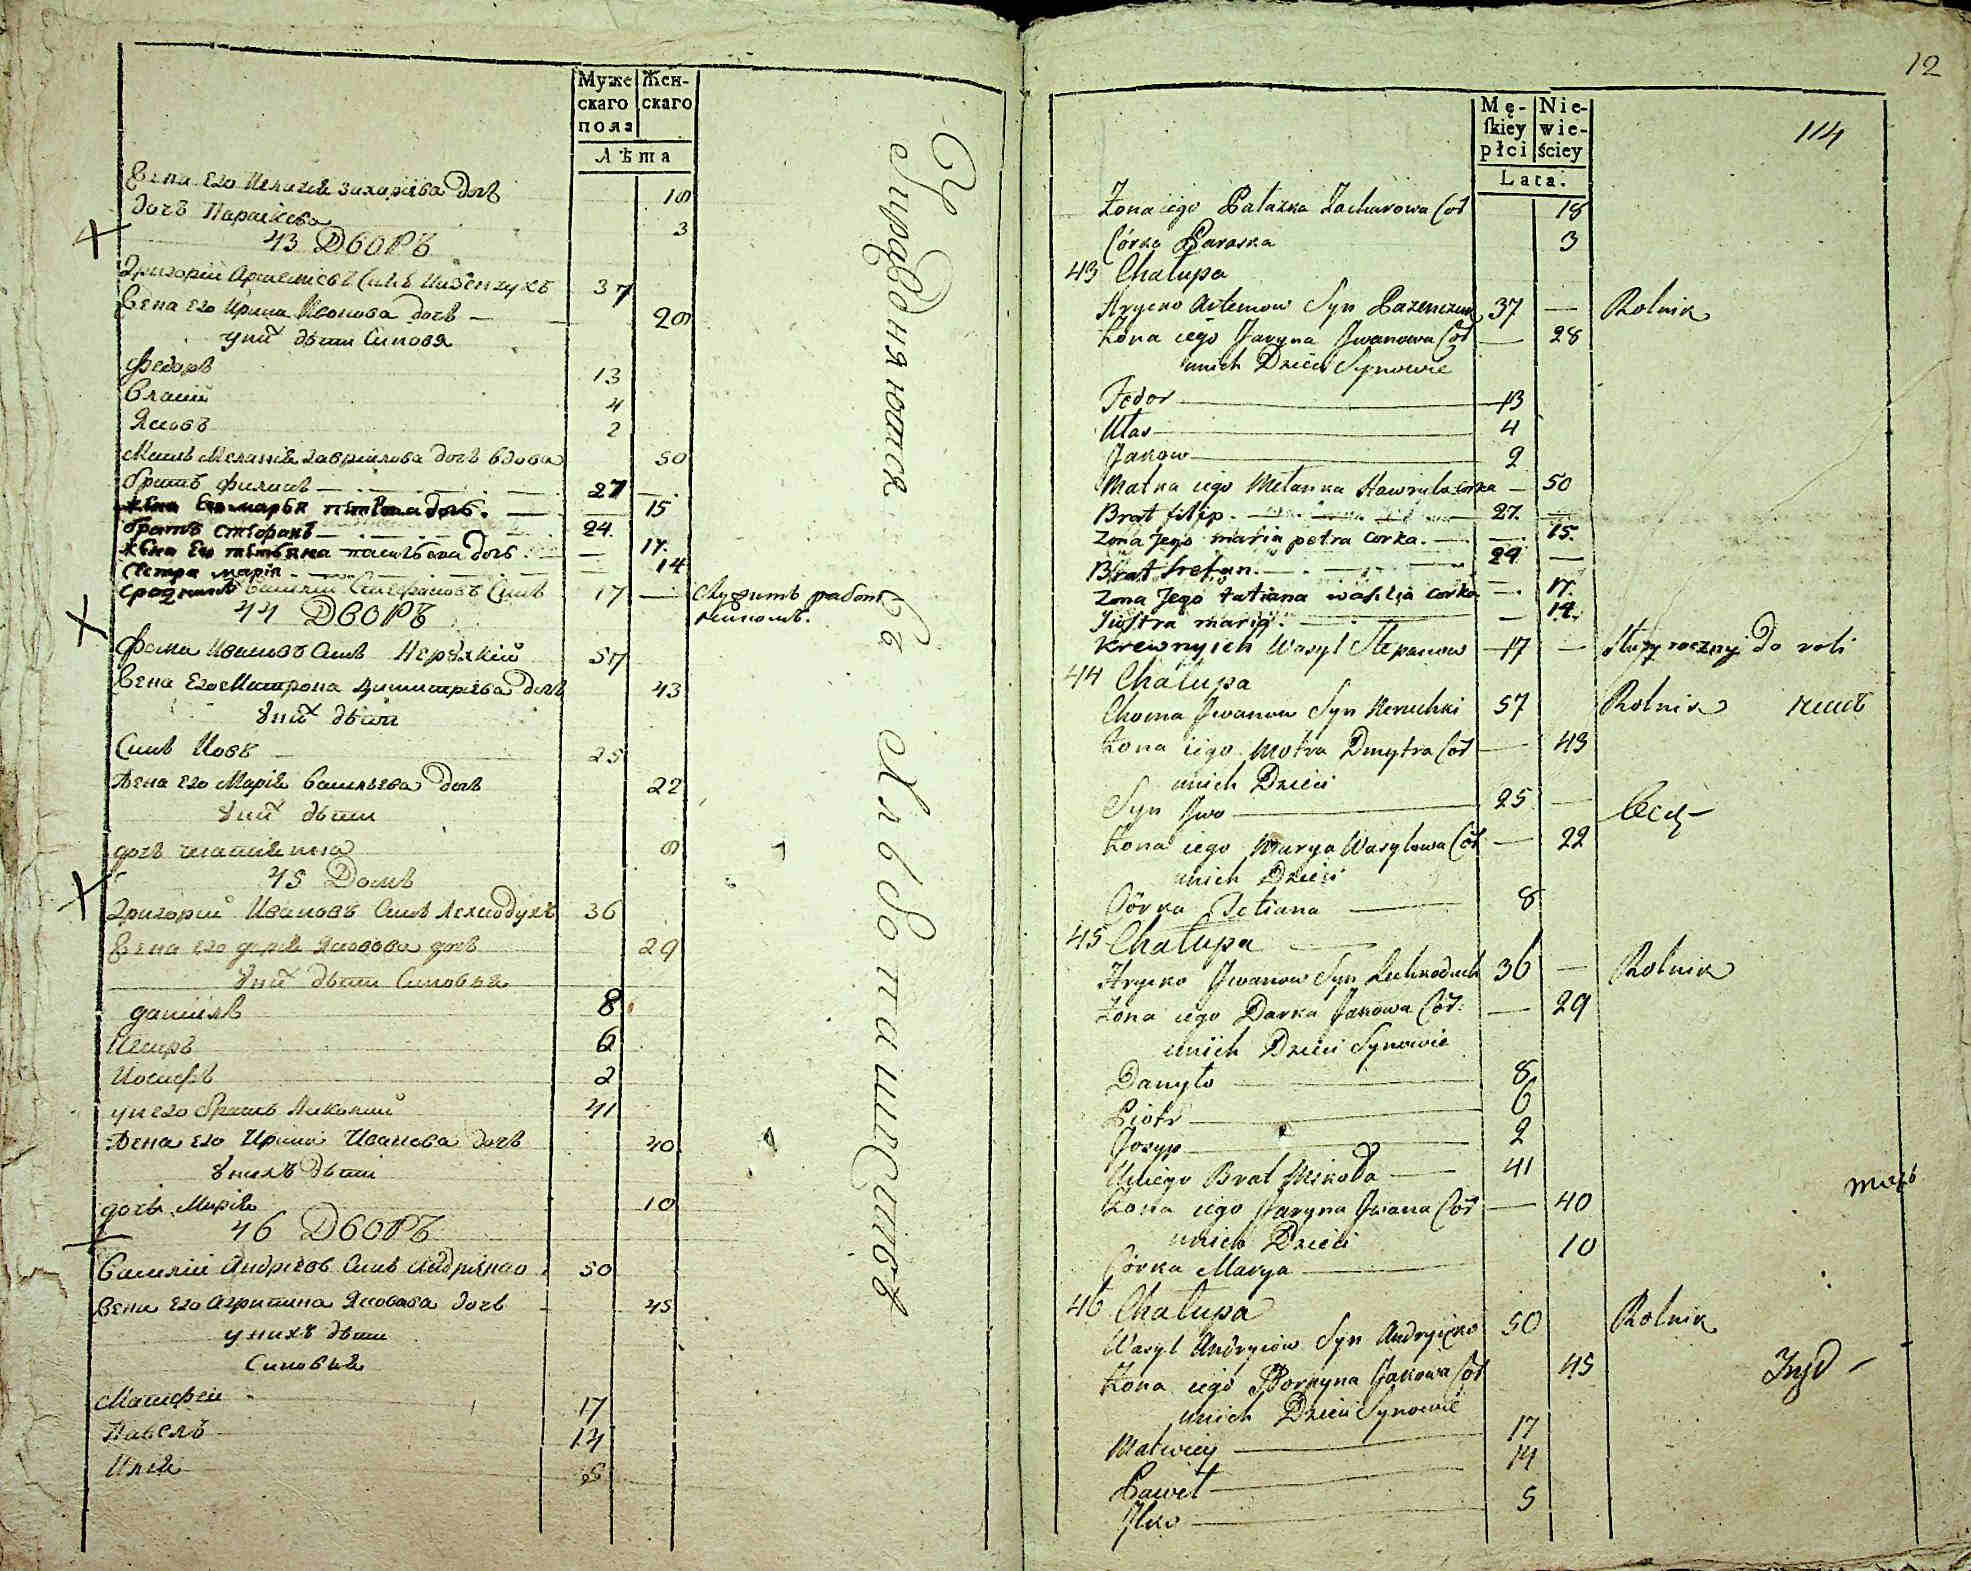 Муже
скаго
пола
Жен-
скаго
Лѣта
Жена его Пелагія Захарıева дочь 18
дочь Параскева 3
43 Дворъ
Григорій Артемıевъ Сынъ 37
Жена его Ирина Иванова дочь — 28
у них дѣти Сыновя
Федоръ 13
Власий 4
Яковъ 2
Мать Меланія Гаврилова дочь вдова 50
братъ Филипъ — 27 —
жена Его марья петрова дочь. — 15
братъ стефанъ — 24.
жена Его татьяна васильева дочь — 17.
сестра марія — 14
сродникъ Василий Стефановъ Сынъ 17 — Служитъ работ
никомъ.
44 Дворъ
Фома Ивановъ Сынъ 57
Жена Его Матрона Димитрıева дочь 43
у них дѣти
Сынъ Иовъ 25
Жена его Марія Васильева дочь 22
у них дѣти
дочь татияна 8
45 Домъ
Григорий Ивановъ Сынъ Лехнодухъ 36
Жена его дарıя Яковова дочь 29
у них дѣти Сыновья
даниилъ 8
Петръ 6
Иосифъ 2
у него братъ Николай 41
Жена его Ирина Иванова дочь 40
у нихъ дѣти
дочь Марія 10
46 Дворъ
Василій Андрıевъ Сынъ Андрıенко 50
Жена его Агрипина Яковова дочь 45
у нихъ дѣти
Сыновья
Матфей 17
Павелъ 14
Илія 5
12
114
Mę-
ſkiey
płci
Nie-
wie-
ściey
Lata.
Żona iego Pałazka Zacharowa Cór 18
Córka Paraska 3
43 Chałupa
Hryćko Artemow Syn 37 — Rolnik
Żona iego Jaryna Jwanowa Cór — 28
unich Dzieci Synowie
Fedor — 13
Ułas — 4
Jakow — 2
Matka iego Mełanka Hawryła corka — 50
Brat filip. — 27.
żona Jego maria petra corka. — 15.
Brat Stefan. — 24 —
żona Jego tatiana wasilia corka — 17.
Siostra maria. — 14.
krewnyich Wasyl Stepanow — 17 — Służy roczny do roli
44 Chałupa
Choma Jwanow Syn 57 Rolnik
Żona iego Motra Dmytra Cór — 43
unich Dzieci
Syn Jwo — 25 —
Żona iego Marya Wasylowa Cór — 22
unich Dzieci
Córka Tetiana — 8
45 Chałupa
Hryćko Jwanow Syn Lechnoduch 36 — Rolnik
Żona iego Darka Jakowa Cór. — 29
unich Dzieci Synowie
Danyło 8
Piotr — 6
Josyp — 2
Uniego Brat Mikoła — 41
Żona iego Jaryna Jwana Cór — 40
unich Dzieci
Córka Marya 10
46 Chałupa
Wasyl Andryiow Syn Andryieńko 50 Rolnik
Żona iego Horpyna Jakowa Cór 45
unich Dzieci Synowie
Matwiey — 17
Paweł — 14
Jlko — 5